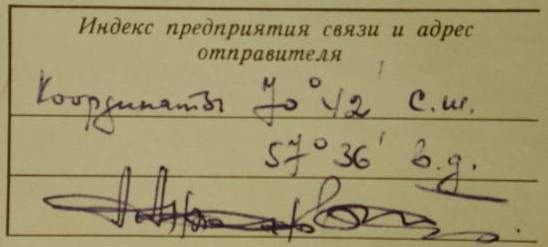 Индекс предприятия связи и адрес
отправителя
Координаты 70° 42' с.ш.
57° 36' в.д.